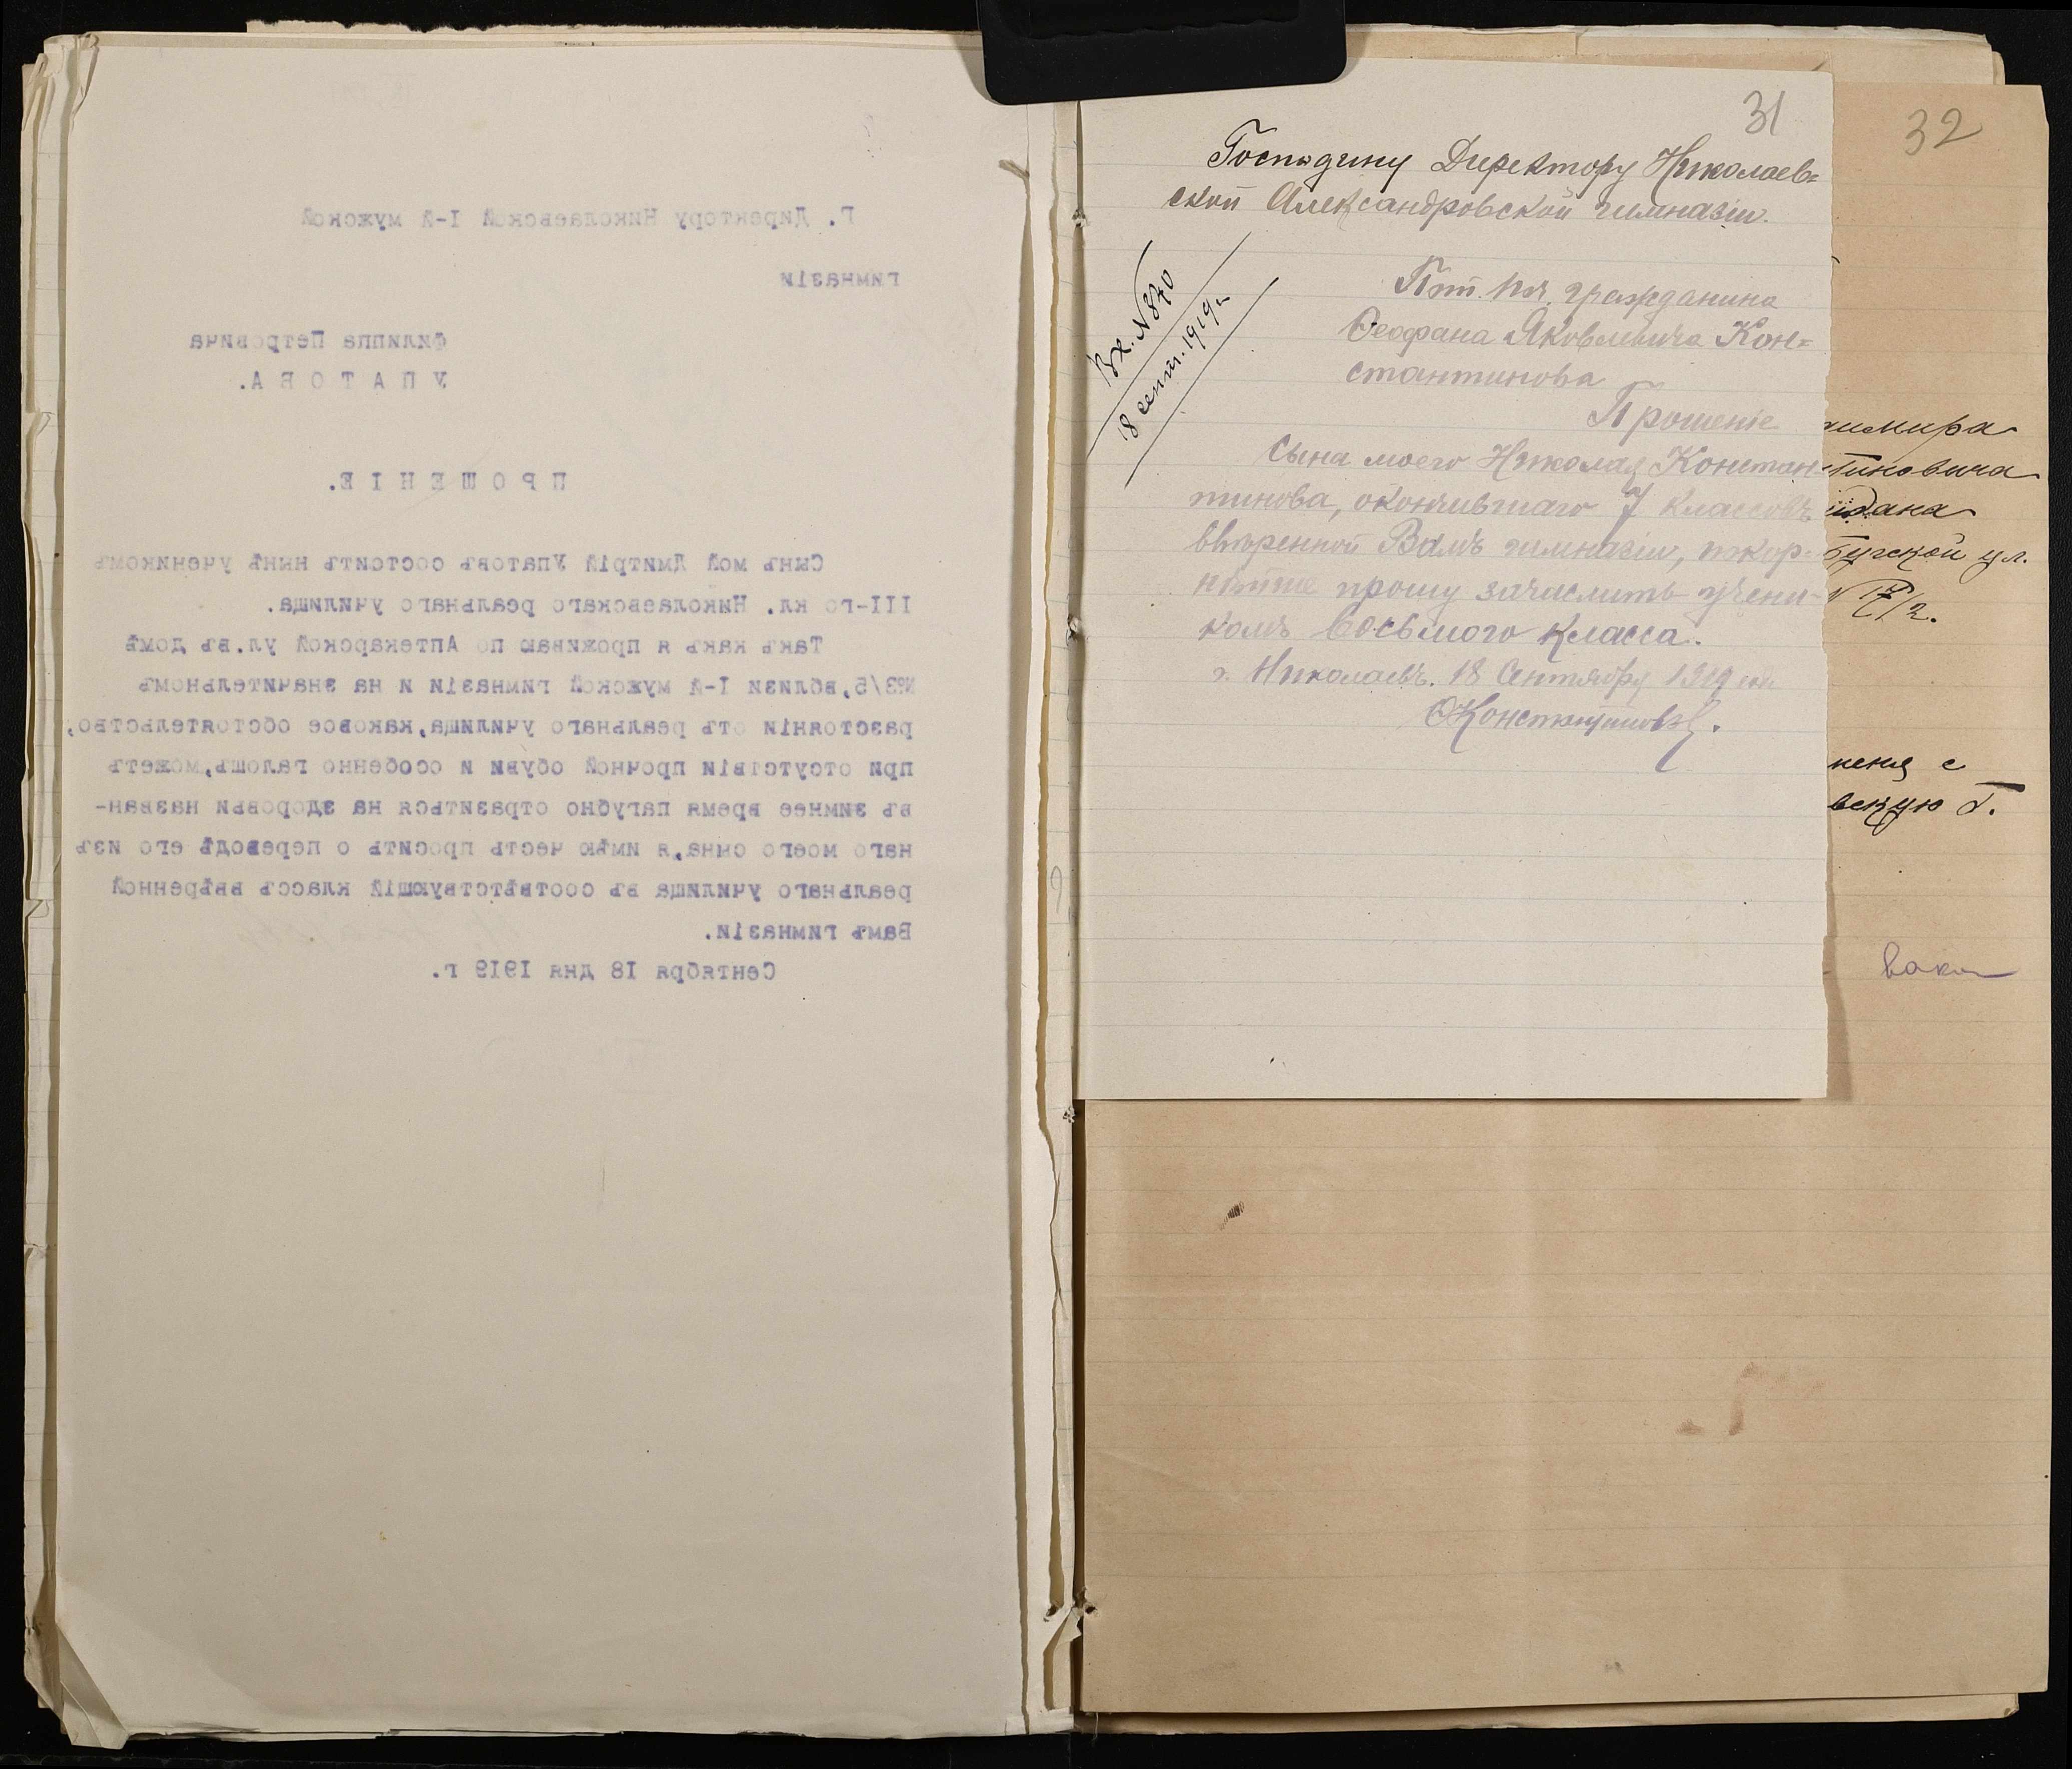 Г. Директору Николаевской I-й мужской
гимназіи
Филиппа Петровича
УПАТОВА.
ПРОШЕНІЕ.
Сынъ мой Дмитрій Упатовъ состоитъ нынѣ ученикомъ
III-го кл. Николаевскаго реальнаго училища.
Такъ какъ я проживаю по Аптекарской ул.въ домѣ
№3/5,вблизи I-й мужской гимназіи и на значительномъ
разстояніи отъ реальнаго училища,каковое обстоятельство,
при отсутствіи прочной обуви и особенно галошъ,можетъ
въ зимнее время пагубно отразиться на здоровьи назван-
наго моего сына,я имѣю честь просить о переводѣ его изъ
реальнаго училища въ соотвѣтствующій классъ ввѣренной
Вамъ гимназіи.
Сентября 18 дня 1919 г.
31
Господину Директору Николаев=
ской Александровской гимназіи.
Вх. N 840
18 сент. 1919 г.
Пот. поч. гражданина
Ѳеофана Яковлевича Кон=
стантинова
Прошеніе
Сына моего Николая Констан-
тинова, окончившаго 7 классовъ
ввѣренной Вамъ гимназіи, покор-
нѣйше прошу зачислить учени-
комъ восьмого класса.
г. Николаевъ. 18 Сентября 1919 года.
ѲКонстантиновъ.
32
димира
тиновича
дана
бугской ул.
N 7/2.
нения с
вскую Г.